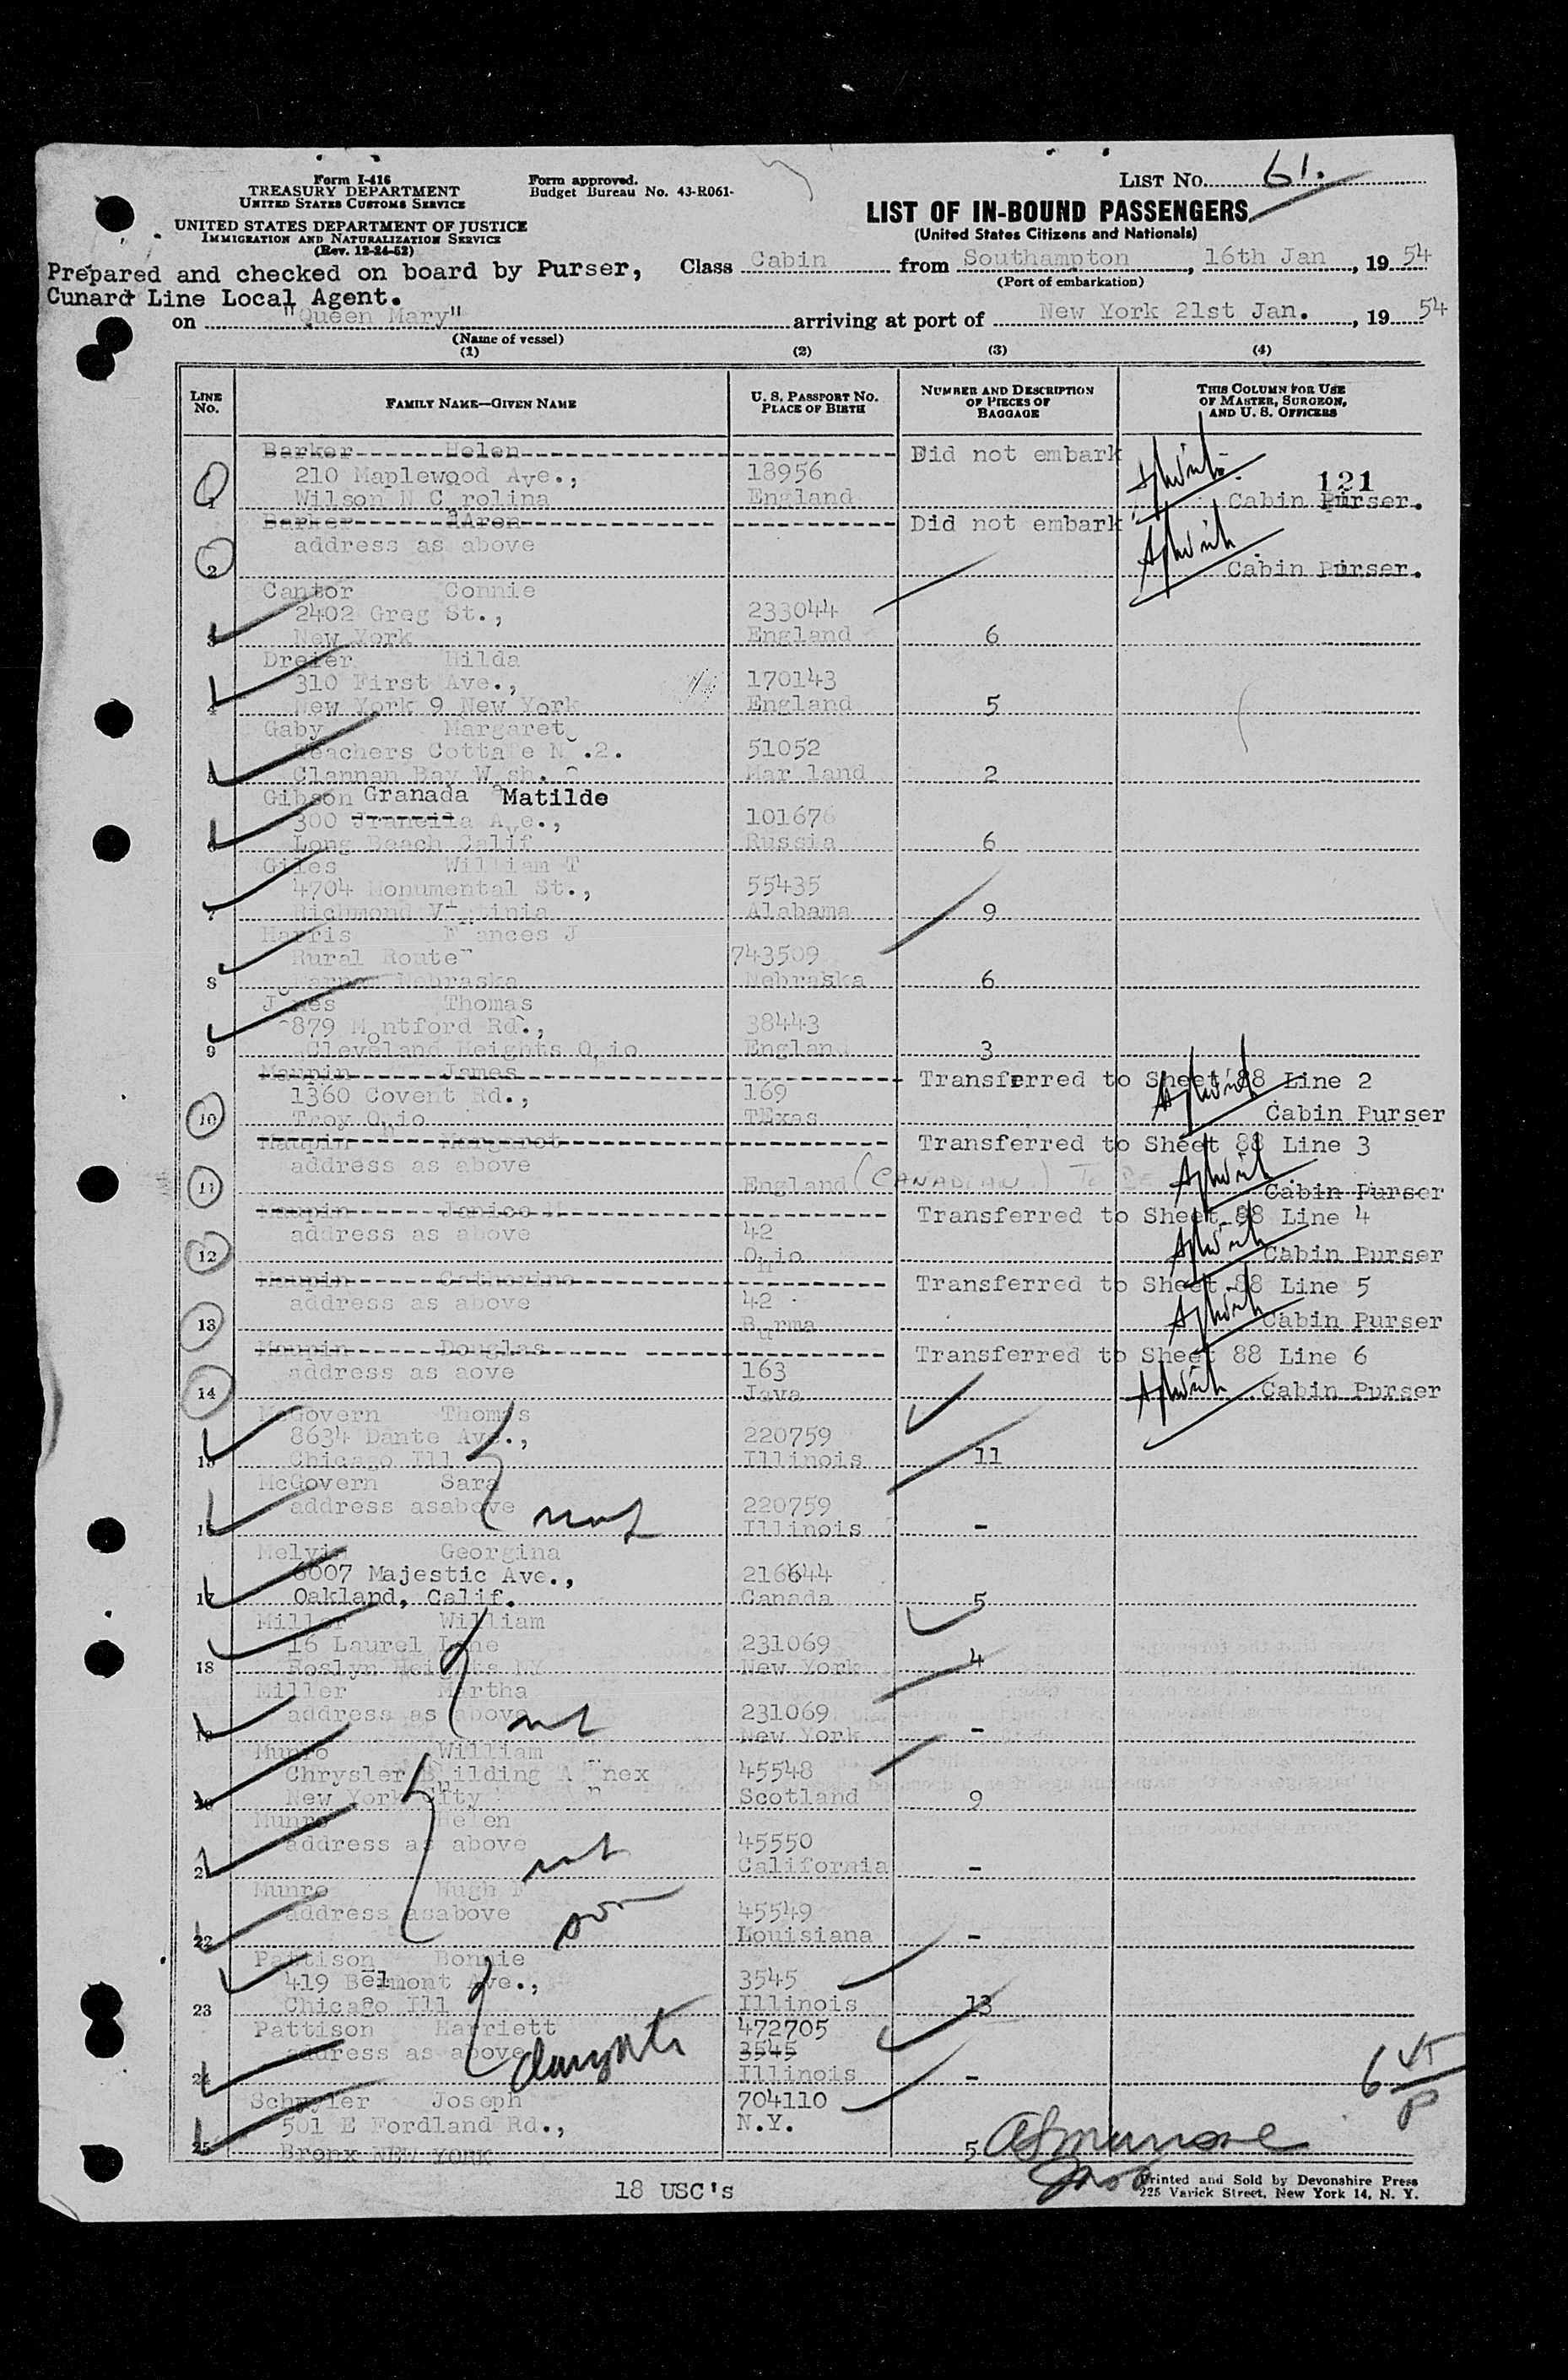 Form I-416
TREASURY DEPARTMENT
UNITED STATES CUSTOMS SERVICE
Form approved.
Budget Bureau No. 43-R061-
LIST NO. 61.
UNITED STATES DEPARTMENT OF JUSTICE
IMMIGRATION AND NATURALIZATION SERVICE
(Rev. 12-24-52)
LIST OF IN-BOUND PASSENGERS
(United States Citizens and Nationals)
Prepared and checked on board by Purser,
Cunard Line Local Agent.
Class Cabin from Southampton, 16th Jan, 19 54
(Port of embarkation)
on "Queen Mary" arriving at port of New York 21st Jan., 19 54
(Name of vessel)
(1) (2) (3) (4)
LINE NO. FAMILY NAME—GIVEN NAME U. S. PASSPORT NO. PLACE OF BIRTH NUMBER AND DESCRIPTION OF PIECES OF BAGGAGE THIS COLUMN FOR USE OF MASTER, SURGEON, AND U. S. OFFICERS
Barker Helen Did not embark
210 Maplewood Ave., 18956 121
1 Wilson N Carolina England Cabin Purser.
Barker Did not embark
address as above
2 Cabin Purser.
Cantor Connie
2402 Greg St., 233044
3 New York England 6
Dreier Hilda
310 First Ave., 170143
4 New York 9 New York England 5
Gaby Margaret
Teachers Cottage No.2. 51052
5 Clannan Bay Wash. Maryland 2
Gibson Granada Matilde
300 Ave., 101676
6 Long Beach Calif Russia 6
Giles William T
4704 Monumental St., 55435
7 Richmond Alabama 9
Harris Frances J
Rural Route 743509
8 Nebraska Nebraska 6
Thomas
879 Montford Rd., 38443
9 Cleveland Heights Ohio England 3
Maupin James Transferred to Sheet 88 Line 2
1360 Covent Rd., 169
10 Troy Ohio TExas Cabin Purser
Maupin Margaret Transferred to Sheet 88 Line 3
address as above
11 England (CANADIAN) Cabin Purser
Maupin Janice M Transferred to Sheet 88 Line 4
address as above 42
12 Ohio Cabin Purser
Maupin Catherine Transferred to Sheet 88 Line 5
address as above 42
13 Burma Cabin Purser
Maupin Douglas Transferred to Sheet 88 Line 6
address as aove 163
14 Java Cabin Purser
McGovern Thomas
8634 Dante Ave., 220759
15 Chicago Ill Illinois 11
McGovern Sara
address asabove 220759
16 Illinois -
Melvin Georgina
6007 Majestic Ave., 216644
17 Oakland, Calif. Canada 5
Miller William
16 Laurel Lane 231069
18 Roslyn Heights NY New York 4
Miller Martha
address as above 231069
19 New York -
Munro William
Chrysler Building Annex 45548
20 New York City Scotland 9
Munro Helen
address as above 45550
21 California -
Munro Hugh
address asabove 45549
son
22 Louisiana -
Pattison Bonnie
419 Belmont Ave., 3545
23 Chicago Ill Illinois 13
Pattison Harriett 472705
address as above 3545
24 Illinois -
Schuyler Joseph 704110
501 E Fordland Rd., N.Y.
25 Bronx NEW YORK 5
18 USC's
Printed and Sold by Devonshire Press
225 Varick Street, New York 14, N. Y.